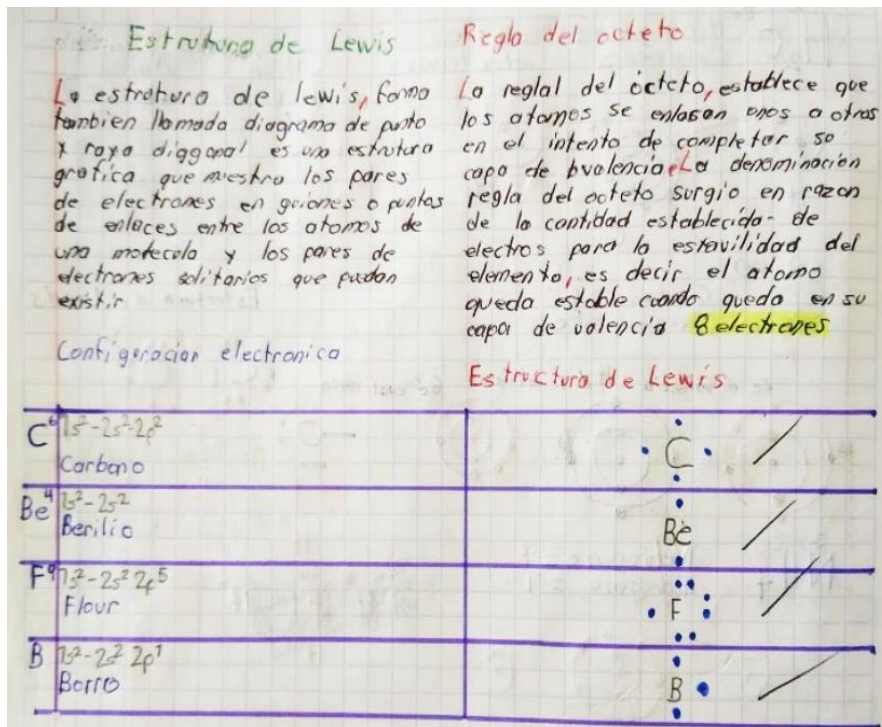 Estrutura de Lewis
La estrutura de lewis, forma
tambien llamada diagrama de punto
y raya diagonal es una estrutura
grafica que muestra los pares
de electrones en guiones o puntos
de enlaces entre los atomos de
una molecula y los pares de
electrones solitarios que puedan
existir
Configuracion electronica
Regla del octeto
La reglal del octeto, establece que
los atomos se enlasan unos a otros
en el intento de completar su
capa de bvalencia. La denominacion
regla del octeto surgio en razon
de la cantidad establecida- de
electros para la estavilidad del
elemento, es decir el atomo
queda estable cuando queda en su
capa de valencia 8 electrones
Estructura de Lewis
C⁶ 1s²-2s²-2p²
Carbono
C
Be⁴ 1s²-2s²
Berilio
Be
F⁹ 1s²-2s² 2p⁵
Flour
F
B 1s²-2s² 2p¹
Borro
B